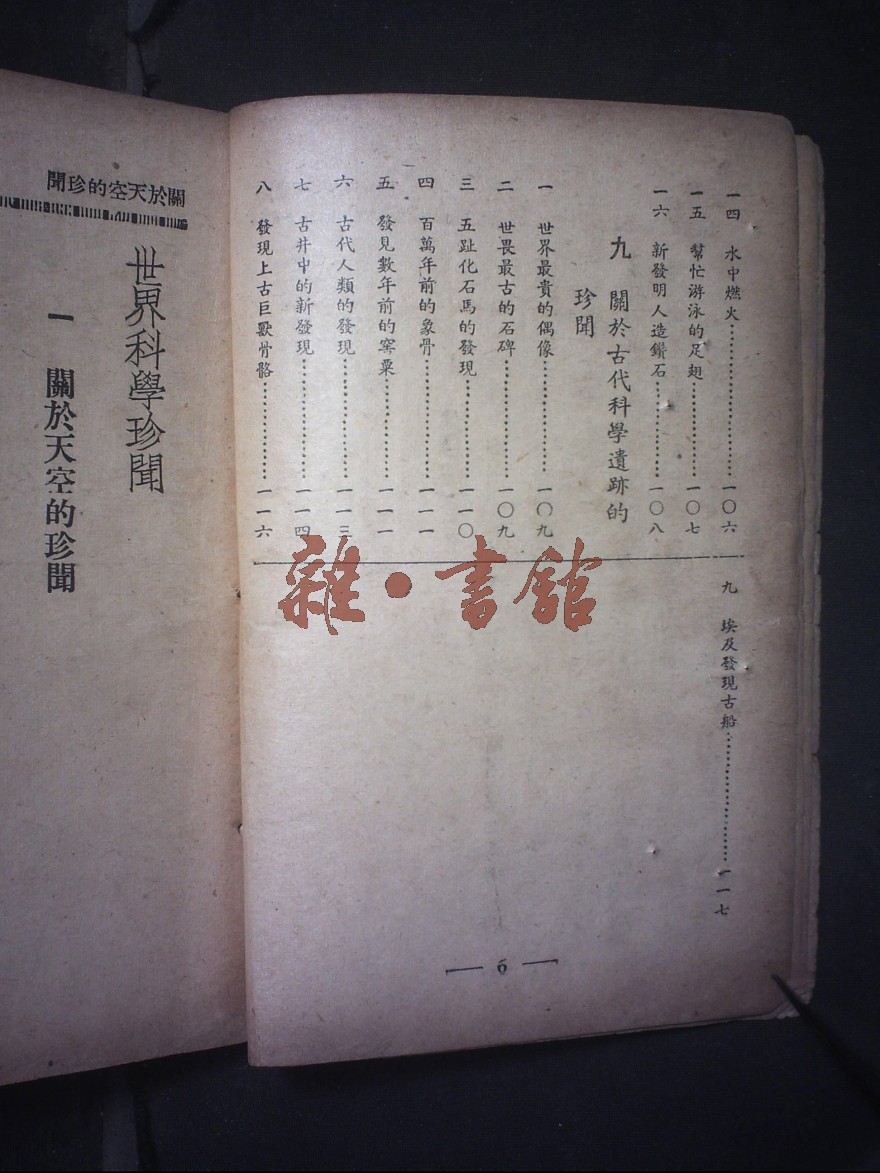 一四　水中燃火……………………一〇六
一五　幫忙游泳的足翅……………一〇七
一六　新發明人造鑽石……………一〇八
九　關於古代科學遺跡的
珍聞
一　世界最貴的偶像………………一〇九
二　世畏最古的石碑………………一〇九
三　五趾化石馬的發現……………一一〇
四　百萬年前的象骨………………一一一
五　發見數年前的窰粟……………一一一
六　古代人類的發現………………一一三
七　古井中的新發現………………一一四
八　發現上古巨獸骨骼……………一一六
九　埃及發現古船…………………一一七
6
雜·書館
關於天空的珍聞
世界科學珍聞
一　關於天空的珍聞